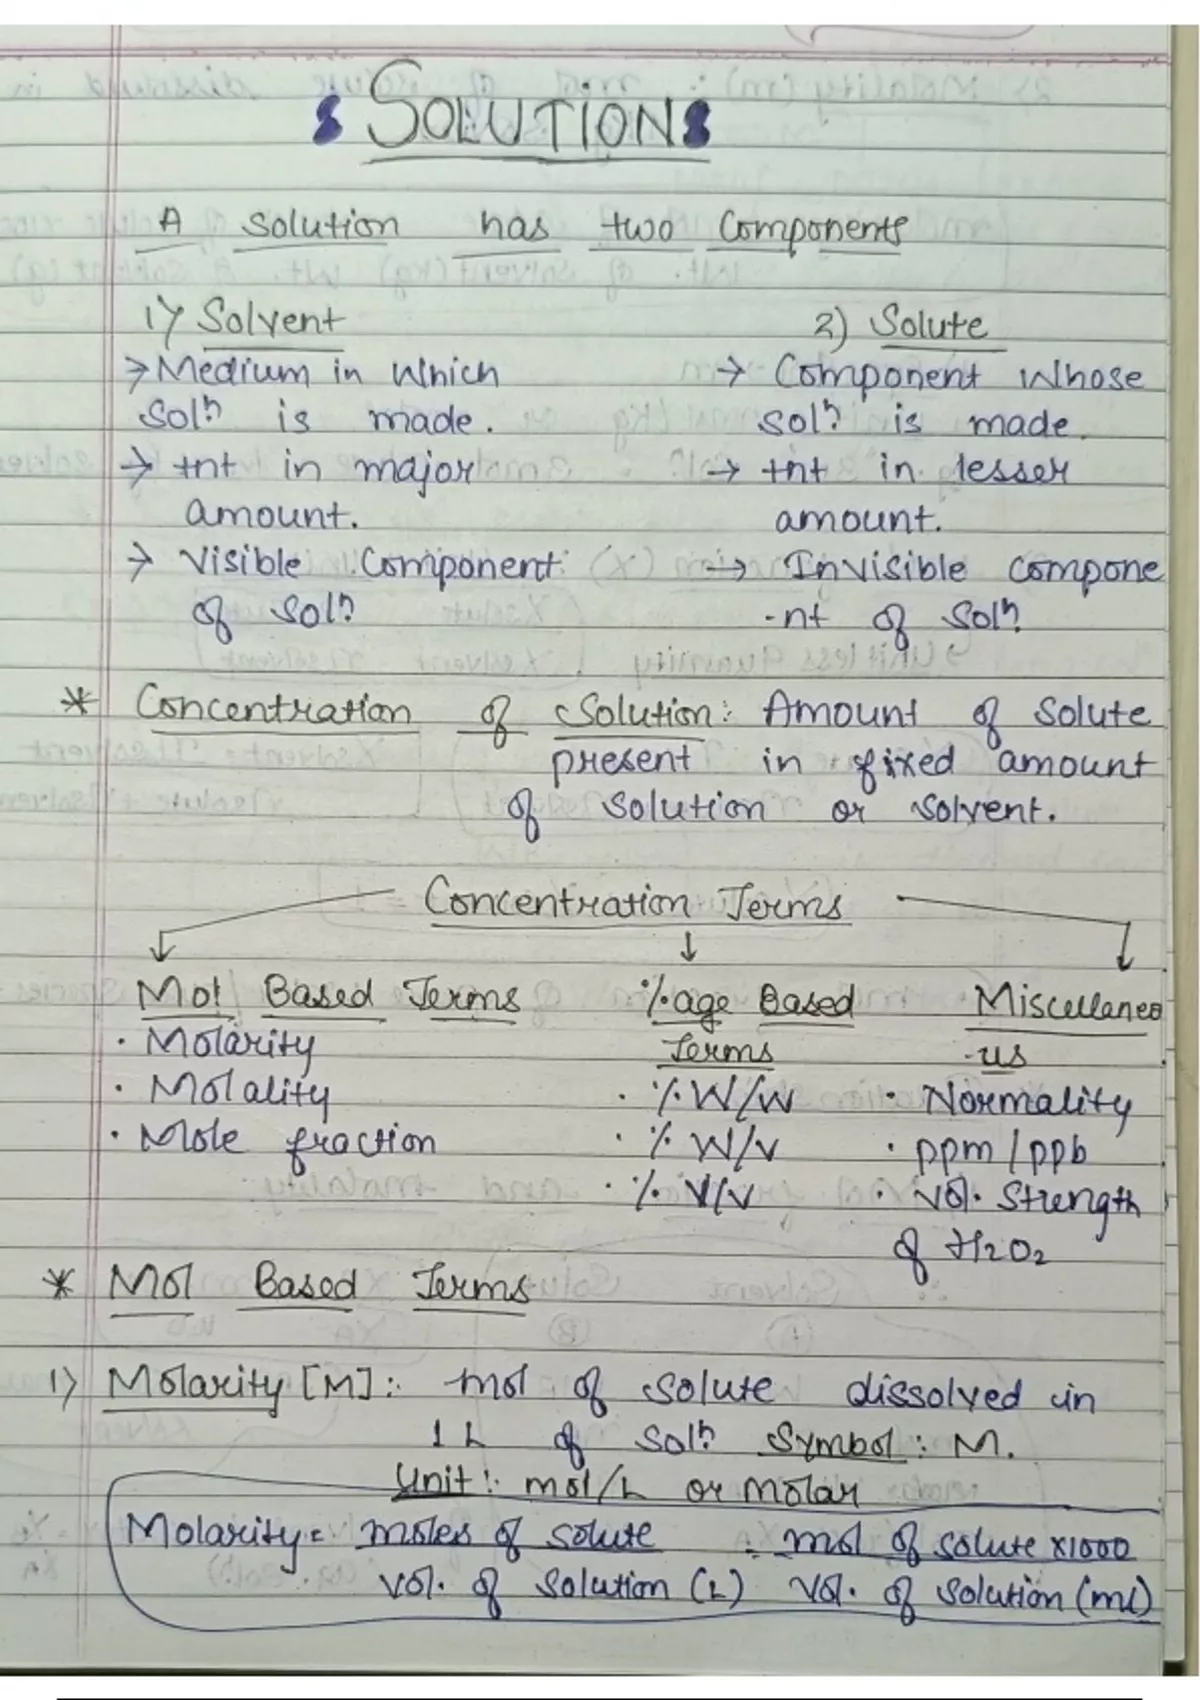 SOLUTION
A solution has two Components
1) Solvent 2) Solute
→ Medium in which → Component whose
Solⁿ is made. solⁿ is made.
→ +nt in major → +nt in lesser
amount. amount.
→ Visible Component → Invisible compone
of solⁿ -nt of solⁿ
* Concentration of Solution: Amount of solute
present in fixed amount
of solution or solvent.
Concentration Terms
Mol Based Terms %age Based Miscellaneo
· Molarity Terms -us
· Molality · % W/W · Normality
· Mole fraction · % W/V · ppm / ppb
· % V/V · vol. strength
of H2O2
* Mol Based Terms
1) Molarity [M]: mol of solute dissolved in
1 L of solⁿ Symbol: M.
Unit: mol/L or Molar
Molarity = moles of solute = mol of solute x1000
vol. of solution (L) vol. of solution (ml)